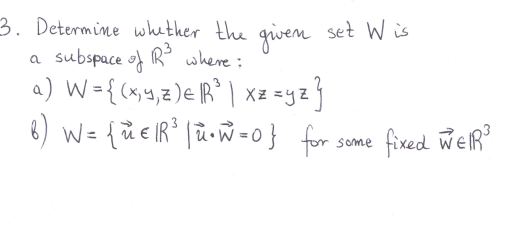 3. Determine whether the given set W is
a subspace of ℝ³ where:
a) W = { (x, y, z) ∈ ℝ³ | xz = yz }
b) W = { u⃗ ∈ ℝ³ | u⃗ • w⃗ = 0 } for some fixed w⃗ ∈ ℝ³